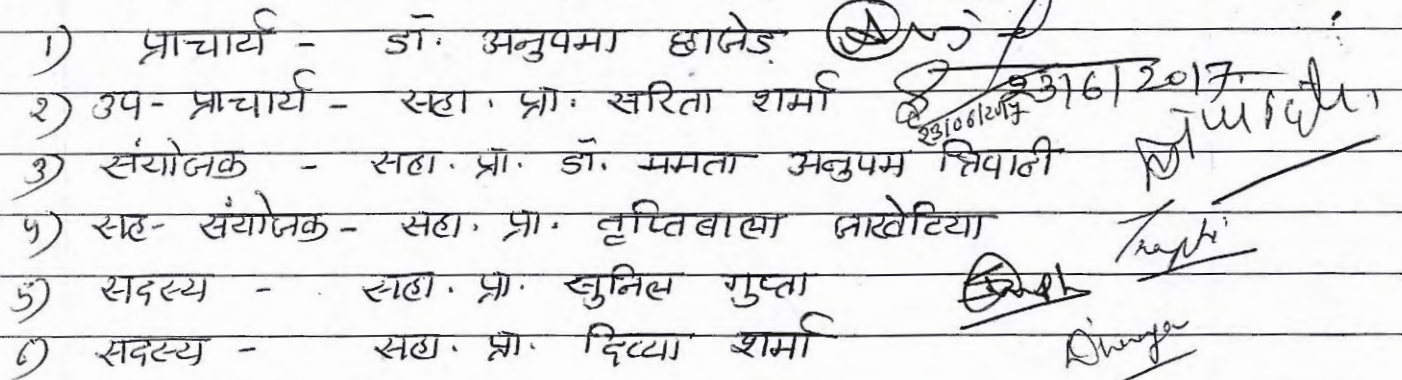 १) प्राचार्य - डॉ. अनुपमा छाजेड़
२) उप-प्राचार्य - सहा. प्रा. सरिता शर्मा 23/06/2017 23/6/2017
३) संयोजक - सहा. प्रा. डॉ. ममता अनुपम त्रिपाठी
४) सह-संयोजक - सहा. प्रा. तृप्तिबाला जाखेटिया Trapti
५) सदस्य - सहा. प्रा. सुनिल गुप्ता
६) सदस्य - सहा. प्रा. दिव्या शर्मा